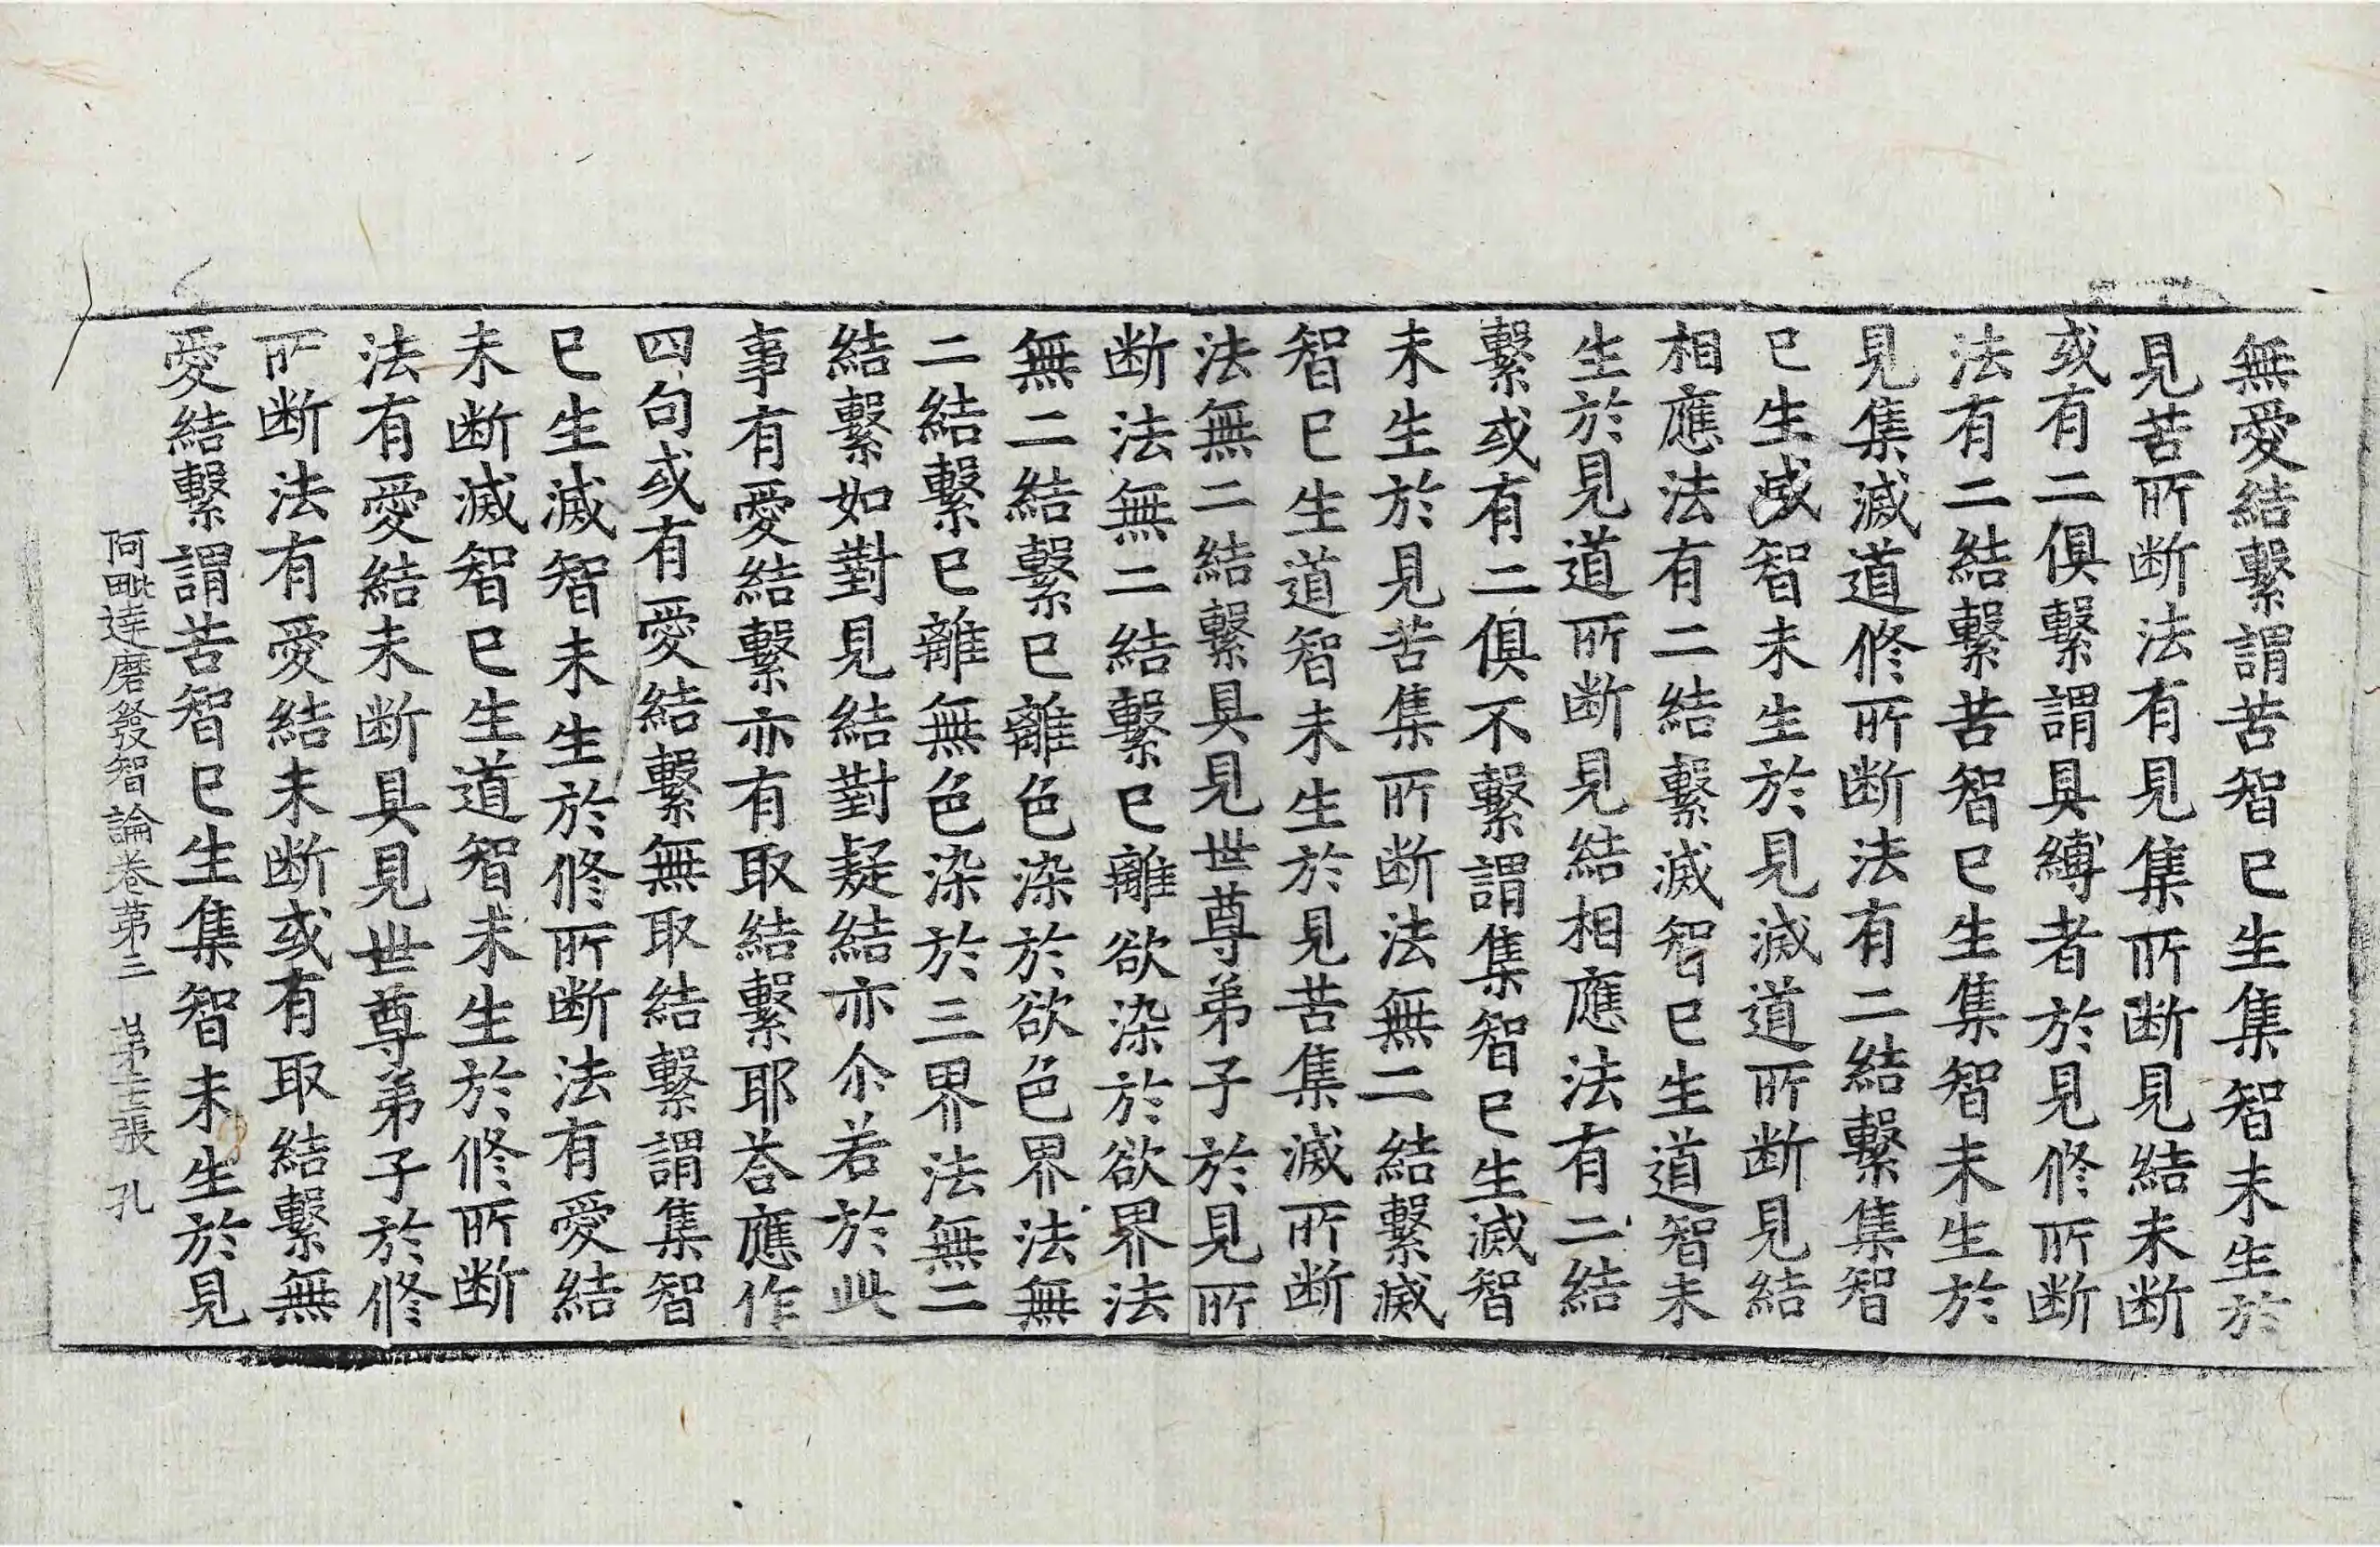 無愛結繫謂苦智已生集智未生於
見苦所断法有見集所断見結未断
或有二俱繫謂具縛者於見修所断
法有二結繫苦智已生集智未生於
見集滅道修所断法有二結繫集智
已生滅智未生於見滅道所断見結
相應法有二結繫滅智已生道智未
生於見道所断見結相應法有二結
繫或有二俱不繫謂集智已生滅智
未生於見苦集所断法無二結繫滅
智已生道智未生於見苦集滅所断
法無二結繫具見世尊弟子於見所
断法無二結繫已離欲染於欲界法
無二結繫已離色染於欲色界法無
二結繫已離無色染於三界法無二
結繫如對見結對疑結亦尒若於此
事有愛結繫亦有取結繫耶荅應作
四句或有愛結繫無取結繫謂集智
已生滅智未生於修所断法有愛結
未断滅智已生道智未生於修所断
法有愛結未断具見世尊弟子於修
所断法有愛結未断或有取結繫無
愛結繫謂苦智已生集智未生於見
阿毗達磨發智論卷第三 第十二張 孔